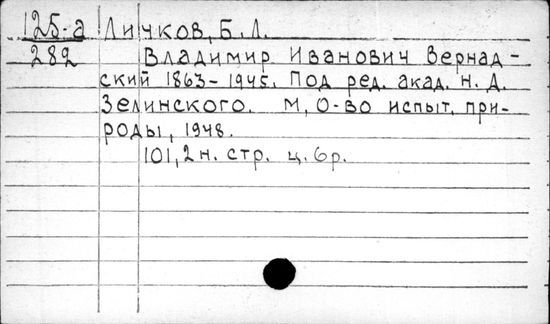 125-а Личков, Б. Л.
282 Владимир Иванович Вернад-
ский 1863-1945. Под ред. акад. Н. Д.
Зелинского. М, О-во испыт. при-
роды, 1948.
101, 2 н. стр. ц. 6 р.